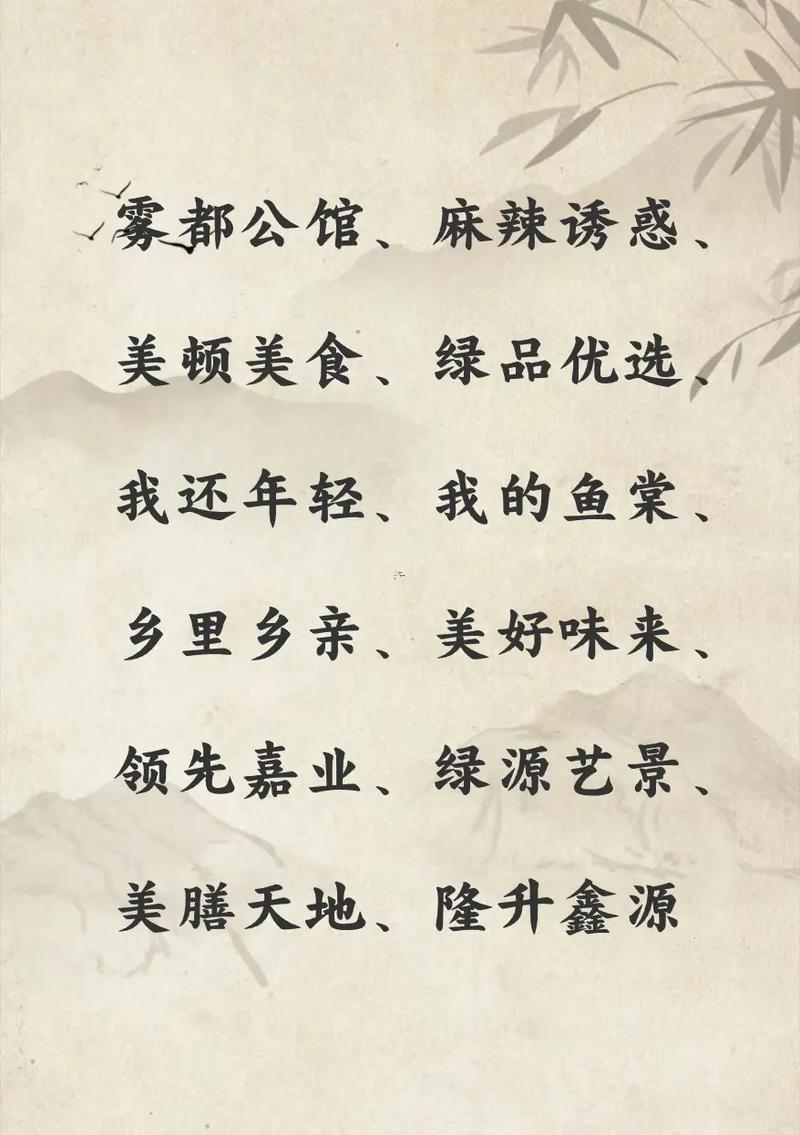 雾都公馆、麻辣诱惑、
美顿美食、绿品优选、
我还年轻、我的鱼棠、
乡里乡亲、美好味来、
领先嘉业、绿源艺景、
美膳天地、隆升鑫源